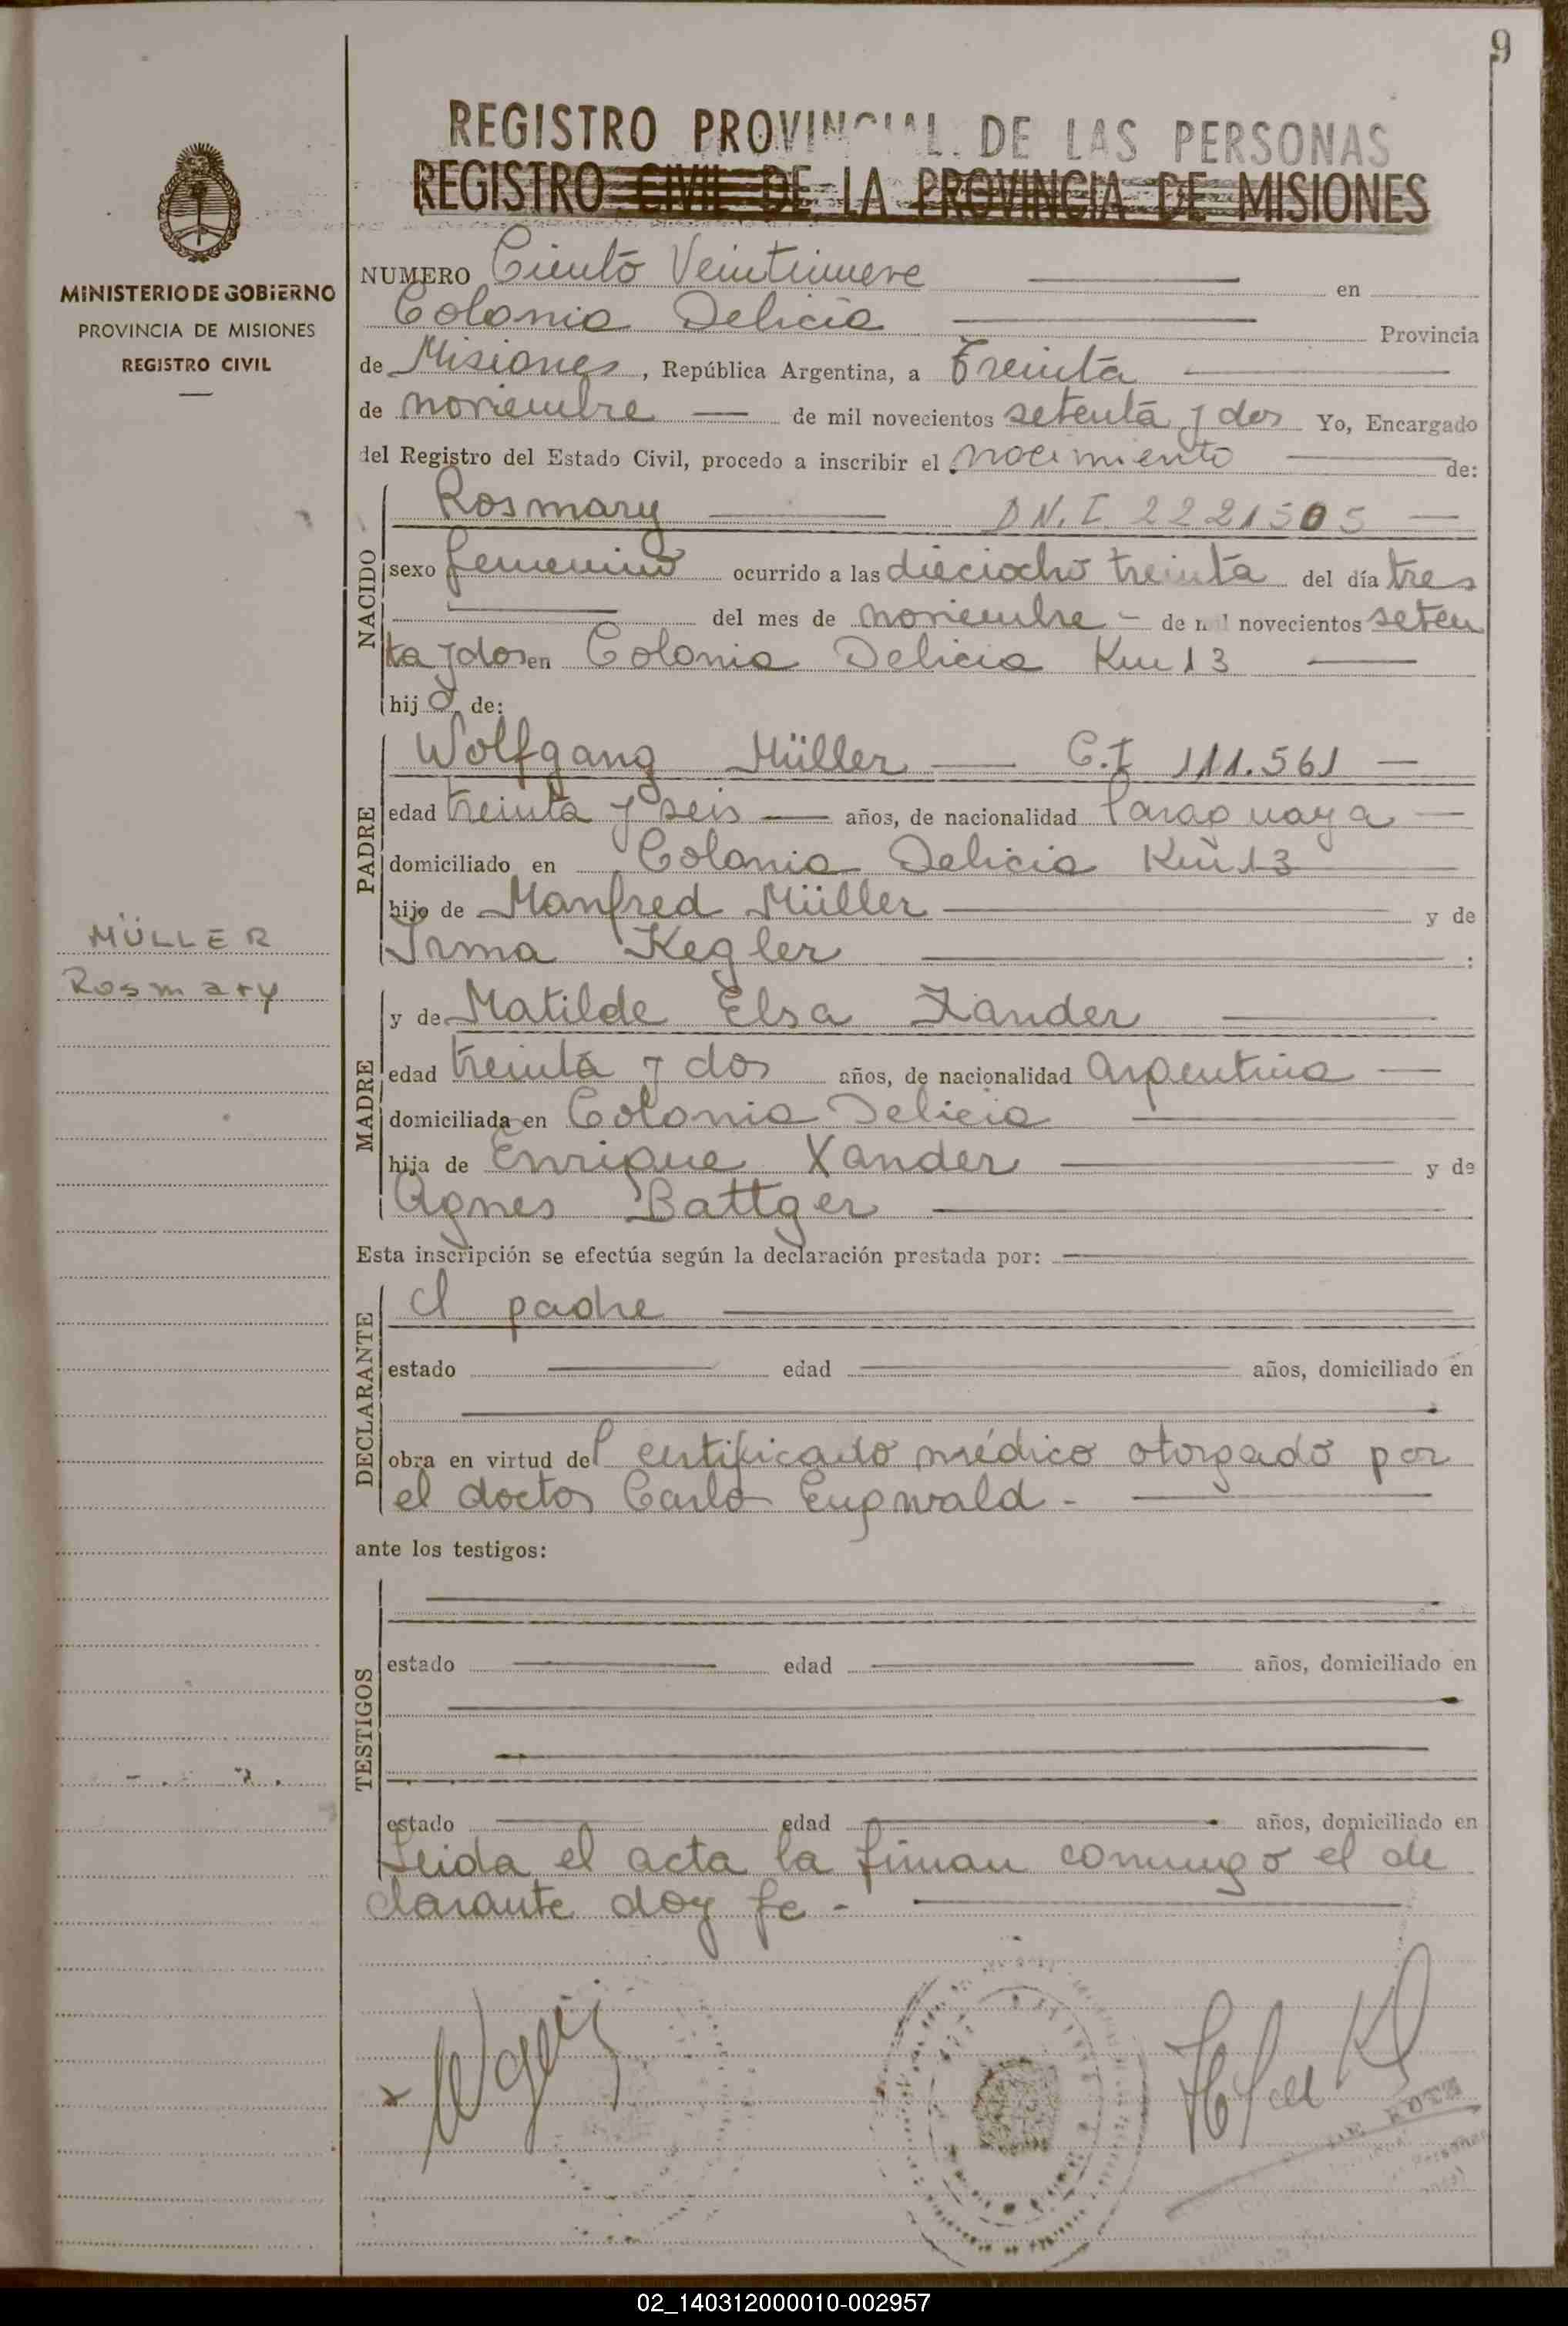 9
REGISTRO PROVINCIAL DE LAS PERSONAS
REGISTRO CIVIL DE LA PROVINCIA DE MISIONES
MINISTERIO DE GOBIERNO
PROVINCIA DE MISIONES
REGISTRO CIVIL
NUMERO Ciento Veintinueve en
Colonia Delicia Provincia
de Misiones, República Argentina, a Treinta
de noviembre de mil novecientos setenta y dos Yo, Encargado
del Registro del Estado Civil, procedo a inscribir el nacimiento de:
NACIDO
Rosmary D.N.I. 2221505
sexo femenino ocurrido a las dieciocho treinta del día tres
del mes de noviembre de mil novecientos seten
ta y dos en Colonia Delicia Km 13
hija de:
PADRE
Wolfgang Müller C.I 111.561
edad treinta y seis años, de nacionalidad Paraguaya
domiciliado en Colonia Delicia Km 13
hijo de Manfred Müller y de
Irma Kegler :
MÜLLER
Rosmary
MADRE
y de Matilde Elsa Xander
edad treinta y dos años, de nacionalidad Argentina
domiciliada en Colonia Delicia
hija de Enrique Xander y de
Agnes Battger
Esta inscripción se efectúa según la declaración prestada por:
DECLARANTE
el padre
estado edad años, domiciliado en
obra en virtud del certificado médico otorgado por
el doctor Carlo Eugwald -
ante los testigos:
TESTIGOS
estado edad años, domiciliado en
estado edad años, domiciliado en
Leida el acta la firman conmigo el de
clarante doy fe -
02_140312000010-002957